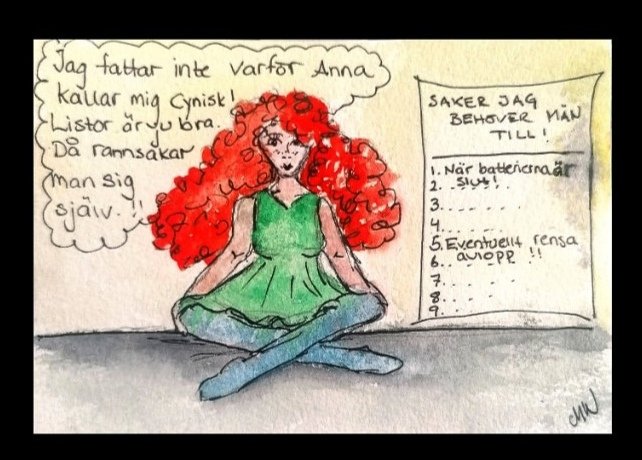 Jag fattar inte varför Anna
kallar mig Cynisk!
Listor är ju bra.
Då rannsakar
man sig
själv. !!
SAKER JAG
BEHÖVER MÄN
TILL!
1. När batterierna är
2. slut!
3. . . . . .
4. . . . . .
5. Eventuellt rensa
6. avlopp !!
7. . . . . .
8. . . . . .
9. . . . . .
MW